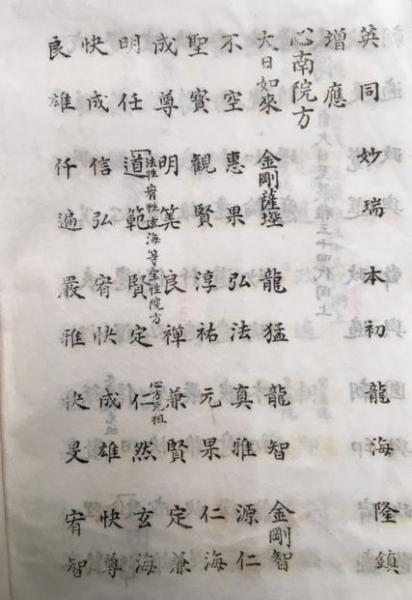 英同 妙瑞 本初 龍海 隆鎮
增應
心南院方
大日如來 金剛薩埵 龍猛 龍智 金剛智
不空 惠果 弘法 真雅 源仁
聖寳 觀賢 淳祐 元果 仁海
成尊 明筭 良禅 兼賢 定兼
明任 道範 賢定 仁然 玄海
法性宥性法海等宝性院方
心方元祖
快成 信弘 宥快 成雄 快尊
良雄 仟遍 嚴雅 快旻 宥智